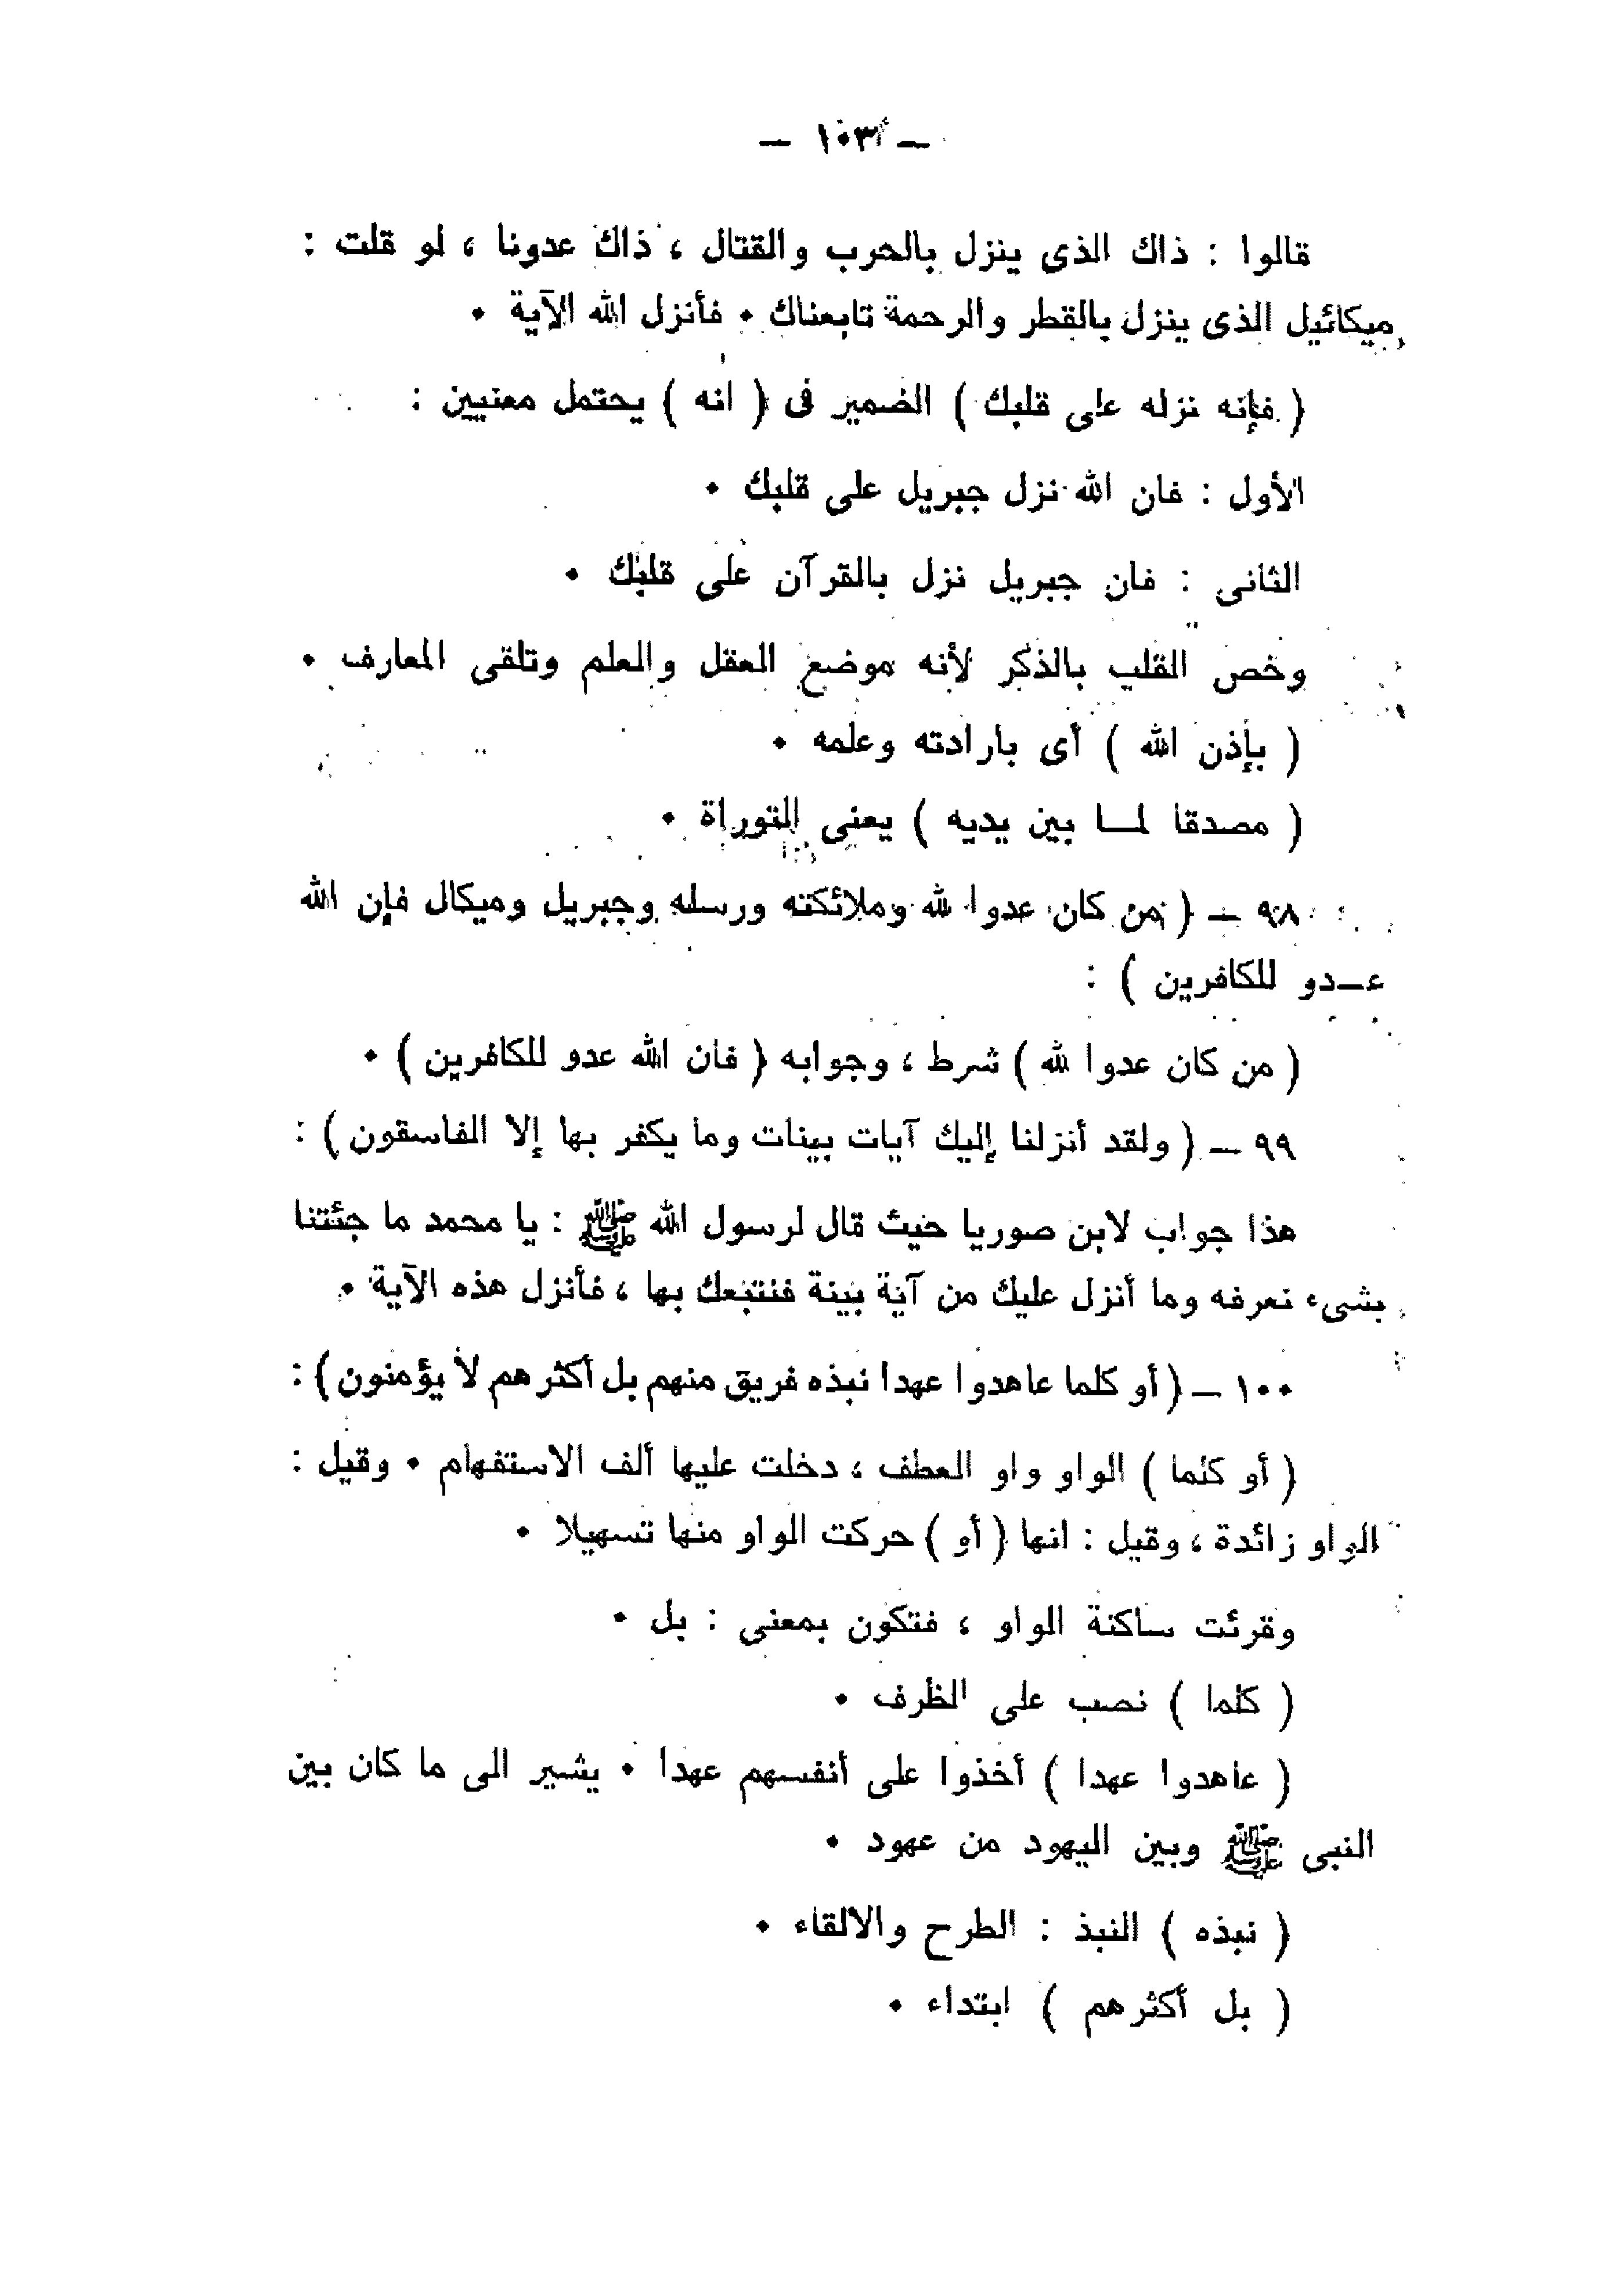 — ١٠٣ —
قالوا : ذاك الذى ينزل بالحرب والقتال ، ذاك عدونا ، لو قلت :
ميكائيل الذى ينزل بالقطر والرحمة تابعناك • فأنزل الله الآية •
( فإنه نزله على قلبك ) الضمير فى ( انه ) يحتمل معنيين :
الأول : فان الله نزل جبريل على قلبك •
الثانى : فان جبريل نزل بالقرآن على قلبك •
وخص القلب بالذكر لأنه موضع العقل والعلم وتلقى المعارف •
( بإذن الله ) أى بارادته وعلمه •
( مصدقا لما بين يديه ) يعنى التوراة •
٩٨ — ( من كان عدوا لله وملائكته ورسله وجبريل وميكال فإن الله
عدو للكافرين ) :
( من كان عدوا لله ) شرط ، وجوابه ( فان الله عدو للكافرين ) •
٩٩ — ( ولقد أنزلنا إليك آيات بينات وما يكفر بها إلا الفاسقون ) :
هذا جواب لابن صوريا حيث قال لرسول الله ﷺ : يا محمد ما جئتنا
بشىء نعرفه وما أنزل عليك من آية بينة فنتبعك بها ، فأنزل هذه الآية •
١٠٠ — ( أو كلما عاهدوا عهدا نبذه فريق منهم بل أكثرهم لا يؤمنون ) :
( أو كلما ) الواو واو العطف ، دخلت عليها ألف الاستفهام • وقيل :
الواو زائدة ، وقيل : انها ( أو ) حركت الواو منها تسهيلا •
وقرئت ساكنة الواو ، فتكون بمعنى : بل •
( كلما ) نصب على الظرف •
( عاهدوا عهدا ) أخذوا على أنفسهم عهدا • يشير الى ما كان بين
النبى ﷺ وبين اليهود من عهود •
( نبذه ) النبذ : الطرح والالقاء •
( بل أكثرهم ) ابتداء •